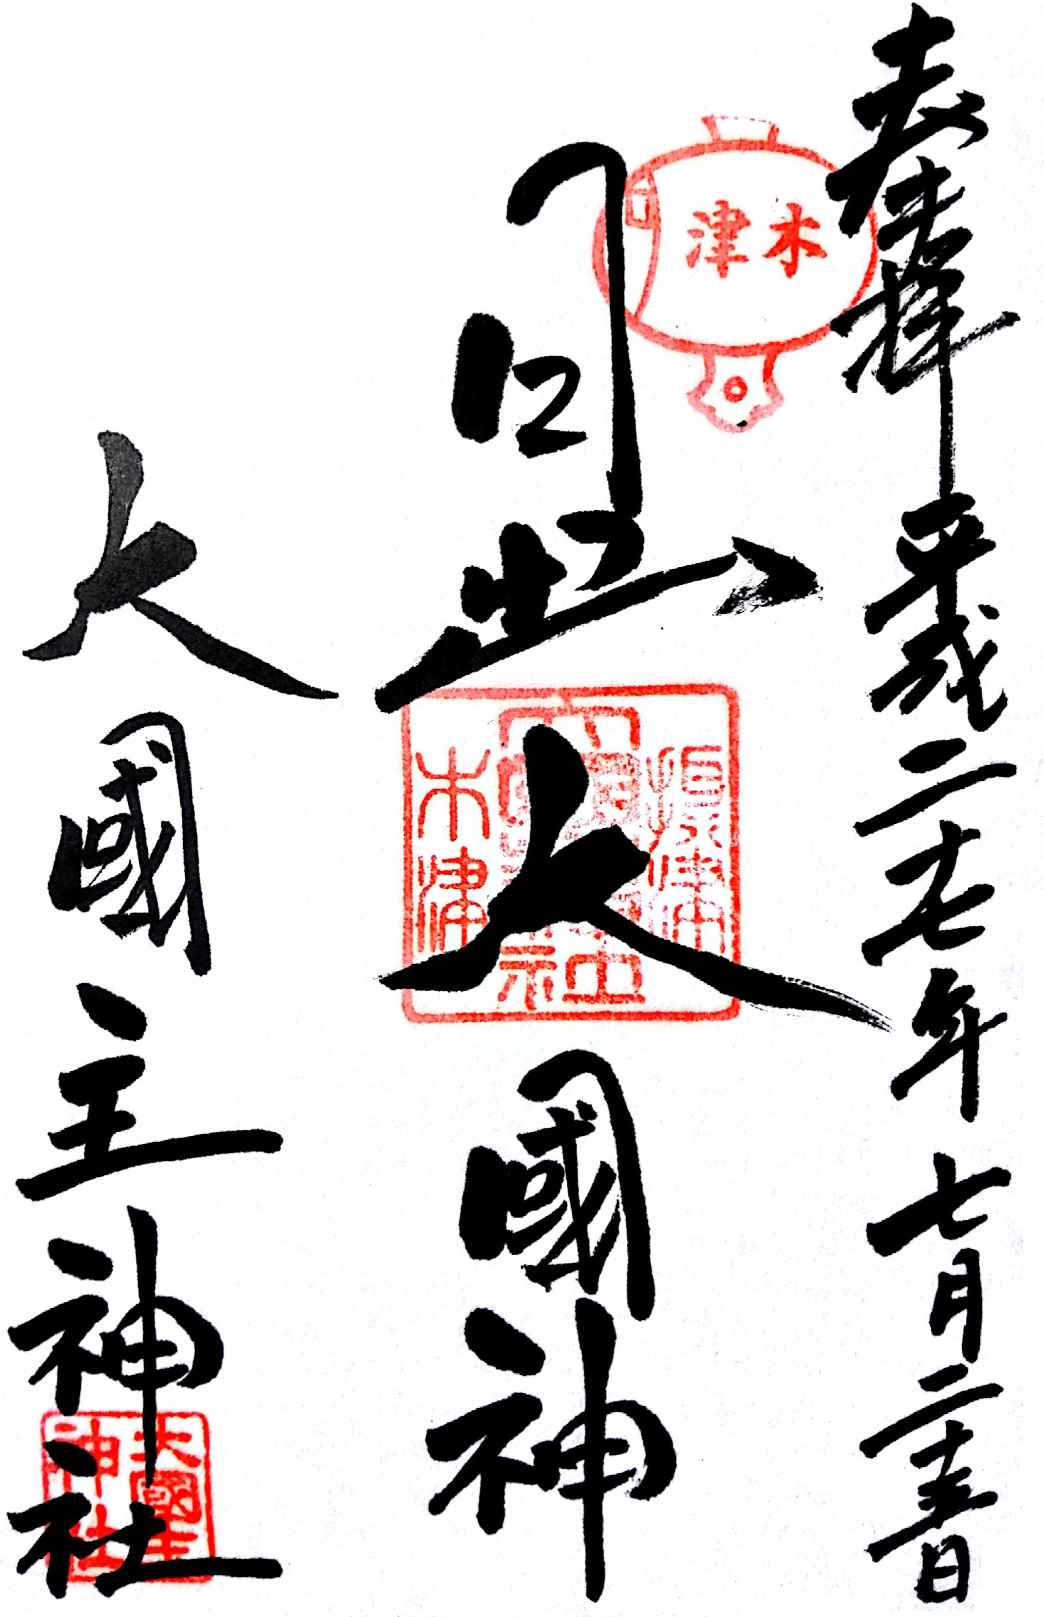 奉拝 平成二十七年七月二十五日
木津
日出大國神
木津
大國主神社
大國主
神社